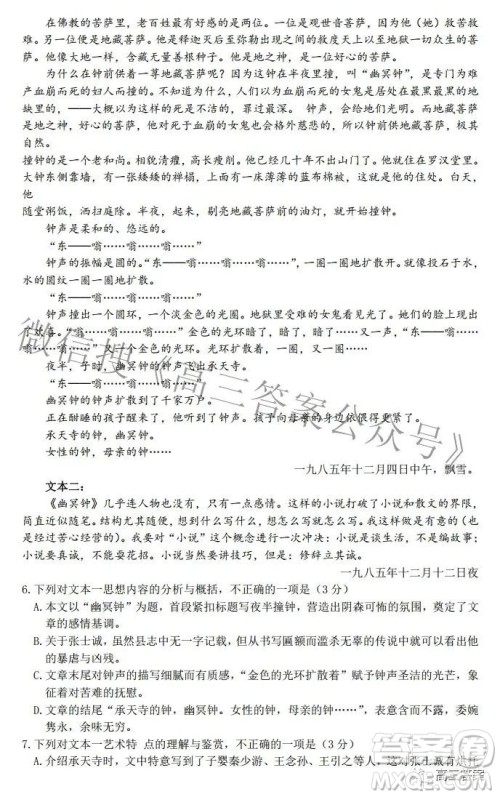 在佛教的菩萨里，老百姓最有好感的是两位。一位是观世音菩萨，因为他（她）救苦救
难。另一位便是地藏菩萨。他是释迦灭后至弥勒出现之间的救度天上以至地狱一切众生的菩
萨。他像大地一样，含藏无量善根种子。他是地之神，是一位好心的菩萨。
为什么在钟前供着一尊地藏菩萨呢？因为这钟在半夜里撞，叫“幽冥钟”，是专门为难
产血崩而死的妇人而撞的。不知道为什么，人们以为血崩而死的女鬼是居处在最黑最黑的地
狱里的，——大概以为这样的死是不洁的，罪过最深。 钟声，会给她们光明。而地藏菩萨
是地之神，好心的菩萨，他对于死于血崩的女鬼也会格外慈悲的，所以钟前供地藏菩萨，极其
自然。
撞钟的是一个老和尚，相貌清癯，高长瘦削。他已经几十年不出山门了。他就住在罗汉堂里。
大钟东侧靠墙，有一张矮矮的禅榻，上面有一床薄薄的蓝布棉被，这就是他的住处。白天，
他
随堂粥饭，洒扫庭除。半夜，起来，剔亮地藏菩萨前的油灯，就开始撞钟。
钟声是柔和的、悠远的。
“东——嗡……嗡……嗡……”
钟声的振幅是圆的。“东——嗡……嗡……嗡……”，一圈一圈地扩散开。就像投石于水，
水的圆纹一圈一圈地扩散。
“东——嗡……嗡……嗡……”
钟声撞出一个圆环，一个淡金色的光圈。地狱里受难的女鬼看见光了。她们的脸上现出
了欢喜。“嗡……嗡……嗡……”金色的光环暗了，暗了，暗了……又一声，“东——嗡……
嗡……嗡……”又一个金色的光环。光环扩散着，一圈，又一圈……
夜半，子时，幽冥钟的钟声飞出承天寺。
“东——嗡……嗡……嗡……”
幽冥钟的钟声扩散到了千家万户。
正在酣睡的孩子醒来了，他听到了钟声。孩子向母亲的身边依偎得更紧了。
承天寺的钟，幽冥钟。
女性的钟，母亲的钟……
一九八五年十二月四日中午，飘雪。
文本二：
《幽冥钟》几乎连人物也没有，只有一点感情。这样的小说打破了小说和散文的界限，
简直近似随笔。结构尤其随便，想到什么写什么，想怎么写就怎么写。我这样做是有意的（也
是经过苦心经营的）。我要对“小说”这个概念进行一次冲决：小说是谈生活，不是编故事；
小说要真诚，不能耍花招。小说当然要讲技巧，但是：修辞立其诚。
一九八五年十二月十二日夜
6.下列对文本一思想内容的分析与概括，不正确的一项是（3 分）
A.本文以“幽冥钟”为题，首段紧扣标题写夜半撞钟，营造出阴森可怖的氛围，奠定了文
章的感情基调。
B.关于张士诚，虽然县志中无一词提及，但从书法匾额而滥杀无辜的传闻，仍然能看出他
的暴虐与凶残。
C.文章末尾对钟声作了诗意化的描写，“金色的光环扩散着”，赋予钟声圣洁的光芒，象征
着对苦难的抚慰。
D.文章的结尾“承天寺的钟，幽冥钟。女性的钟，母亲的钟……”，节奏缓慢、舒展，委婉
隽永，余味无穷。
7.下列对文本一艺术特 点的理解与鉴赏，不正确的一项是（3 分）
A.介绍承天寺时，文章写到了子婴秦少游、王念孙、王引之等人，这对张士诚有烘托
微信搜《高三答案公众号》